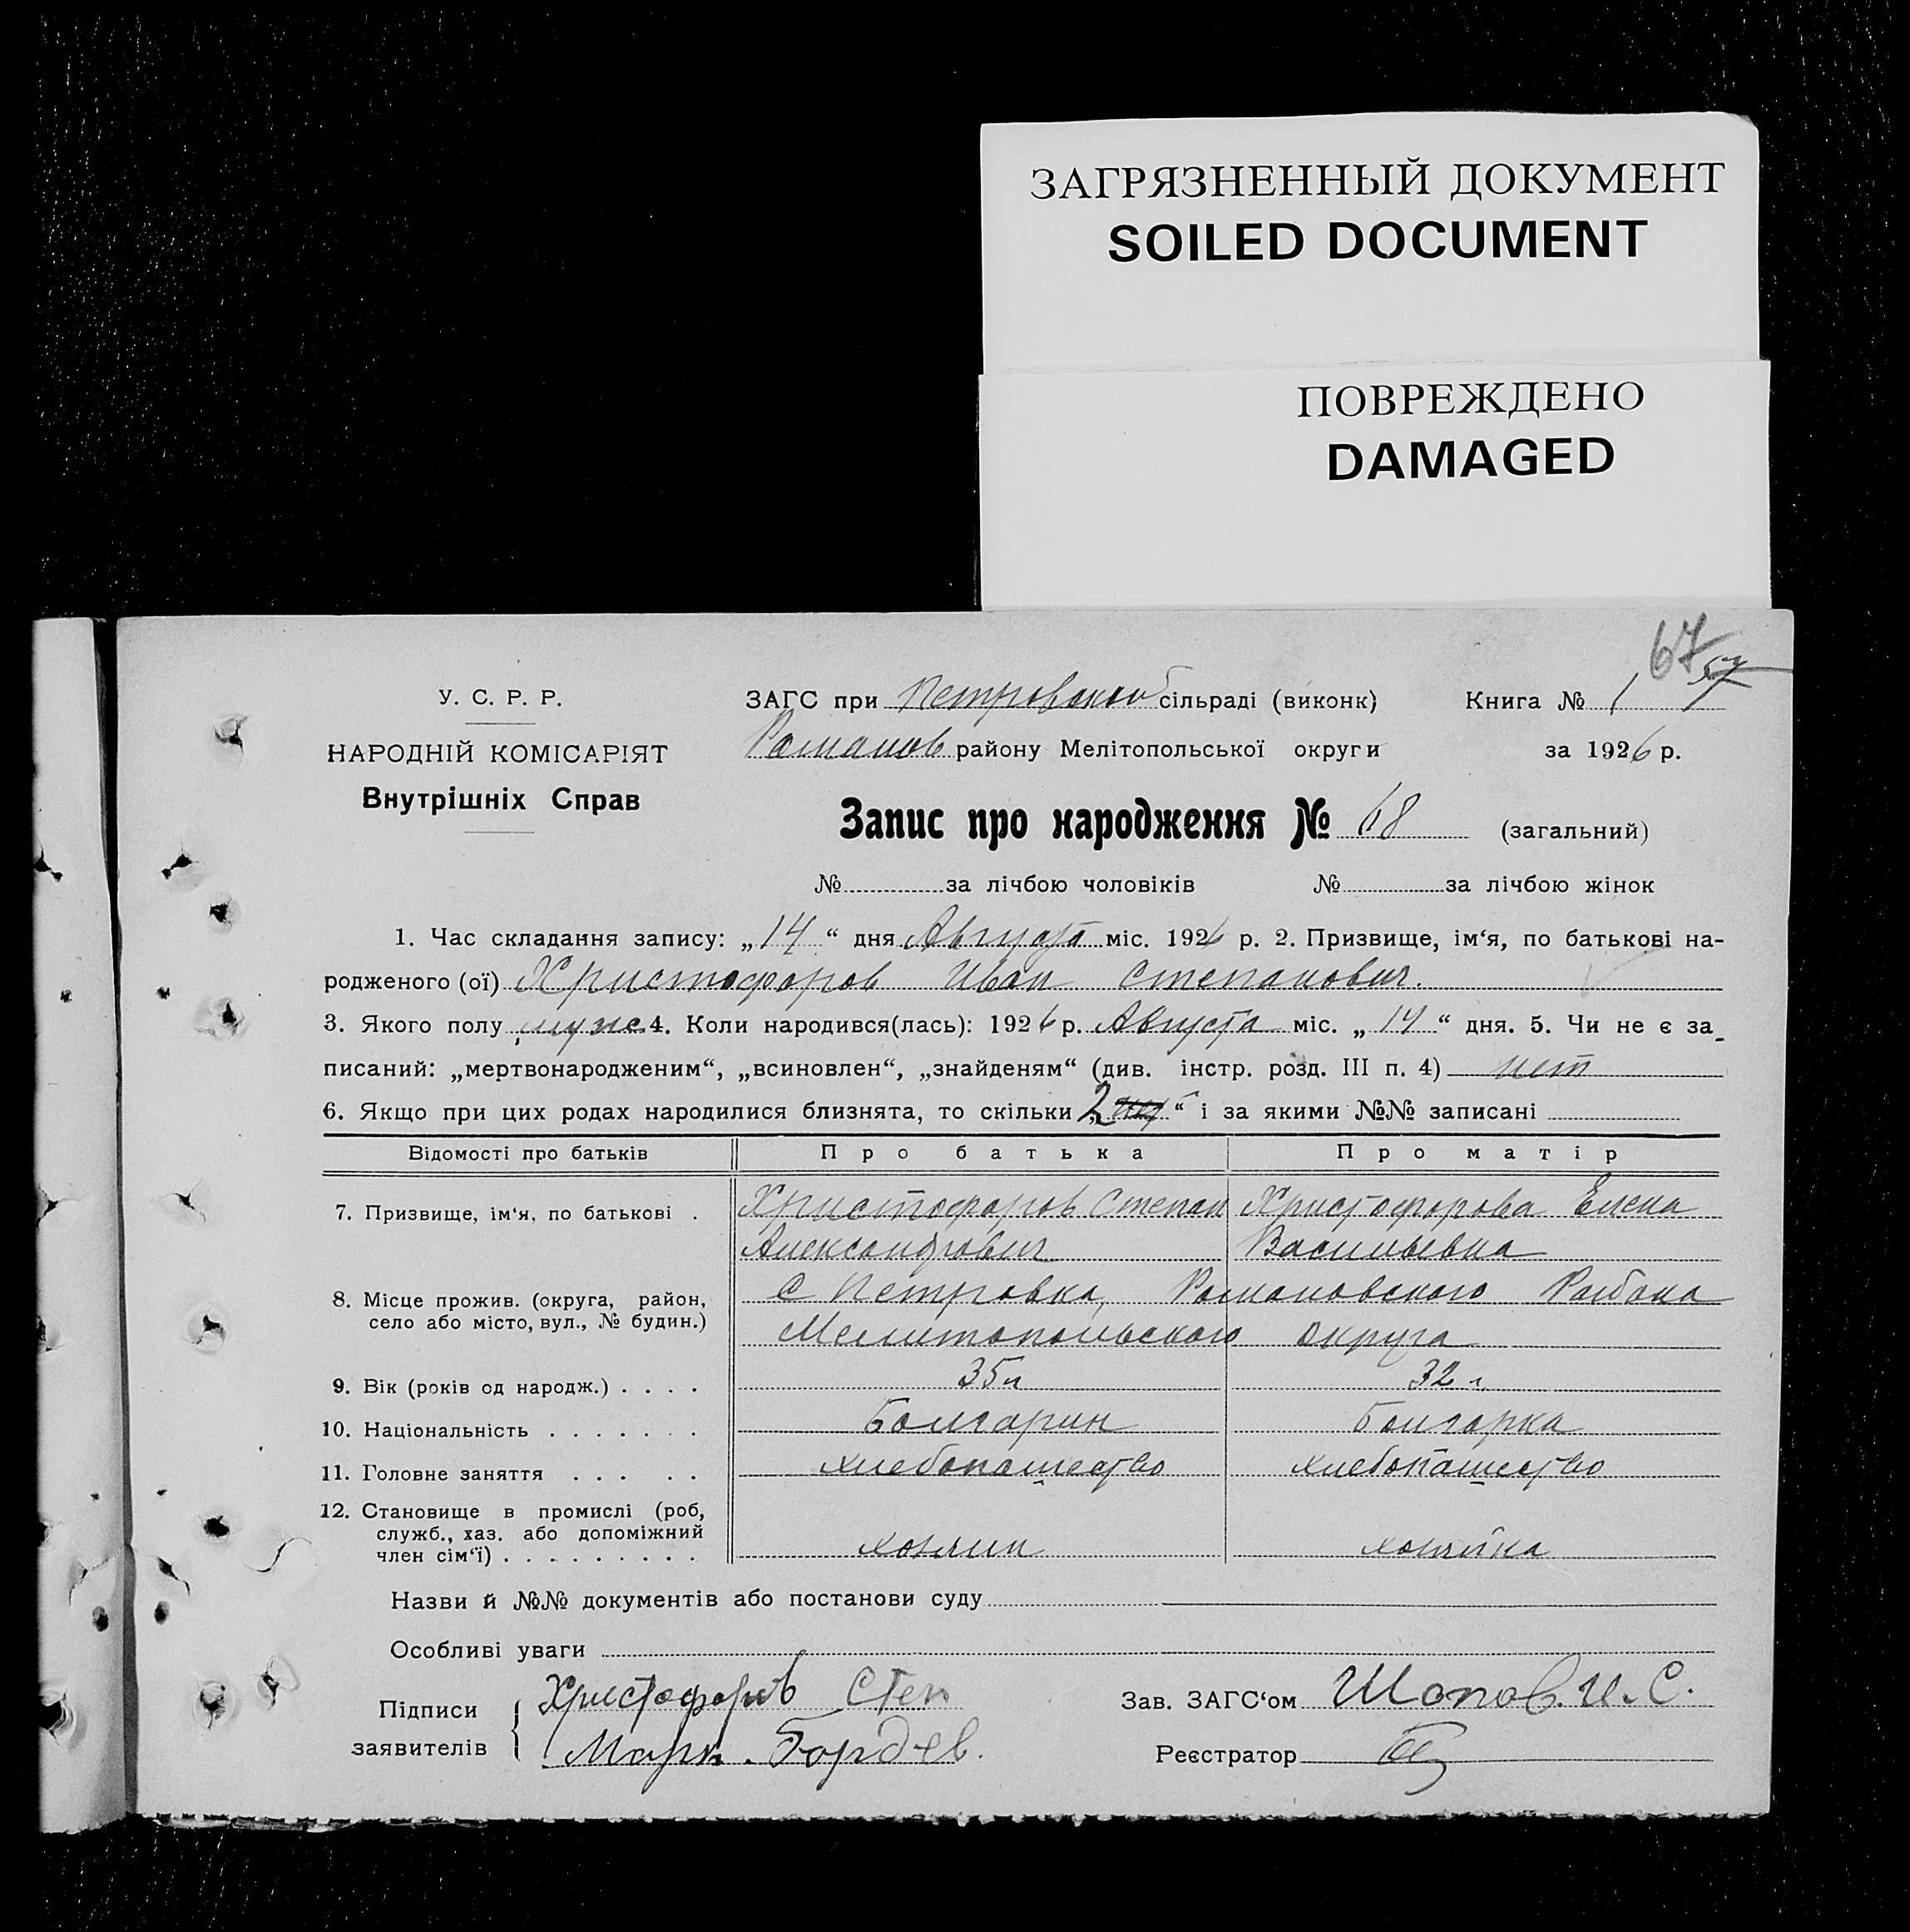 ЗАГРЯЗНЕННЫЙ ДОКУМЕНТ
SOILED DOCUMENT
ПОВРЕЖДЕНО
DAMAGED
67
57
У. С. Р. Р.
НАРОДНІЙ КОМІСАРІЯТ
Внутрішніх Справ
ЗАГС при Петровской сільраді (виконк) Книга № 1
Романов району Мелітопольської округи за 1926 р.
Запис про народження № 68 (загальний)
№ за лічбою чоловіків № за лічбою жінок
1. Час складання запису: „14“ дня Августа міс. 1926 р. 2. Призвище, ім‘я, по батькові на-
родженого (ої) Христофоров Иван Степанович.
3. Якого полу муж 4. Коли народився(лась): 1926 р. Августа міс. „14“ дня. 5. Чи не є за-
писаний: „мертвонародженим“, „всиновлен“, „знайденям“ (див. інстр. розд. III п. 4) нет
6. Якщо при цих родах народилися близнята, то скільки „2 нет“ і за якими №№ записані
Відомості про батьків Про батька Про матір
7. Призвище, ім‘я, по батькові . Христофоров Степан Христофорова Елена
Александрович Васильевна
8. Місце прожив. (округа, район, С Петровка, Романовского Района
село або місто, вул., № будин.) Мелитопольского округа
9. Вік (років од народж.) . . . . 35 л 32 г.
10. Національність . . . . . . . Болгарин Болгарка
11. Головне заняття . . . . . хлебопашество хлебопашество
12. Становище в промислі (роб,
служб., хаз. або допоміжний
член сім‘ї) . . . . . . . . . хозяин хозяйка
Назви й №№ документів або постанови суду
Особливі уваги
Підписи Христофоров Степ Зав. ЗАГС‘ом Шопов. И. С.
заявителів Марк. Гордев. Реєстратор